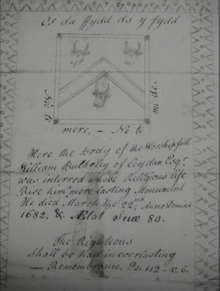 Os da ffydd da y ffydd
Ne ti
me de.
mere, - No ti
Here the Body of the Worshipfull
William Bulkeley of Coydan Esqr.
was interred whose Religious life
Rise him more lasting Monument
He died March the 22nd Anno Domini
1682, & Ætat suæ 80.
The Righteous
Shall be had in everlasting
Remembrance Ps. 112 - v. 6.